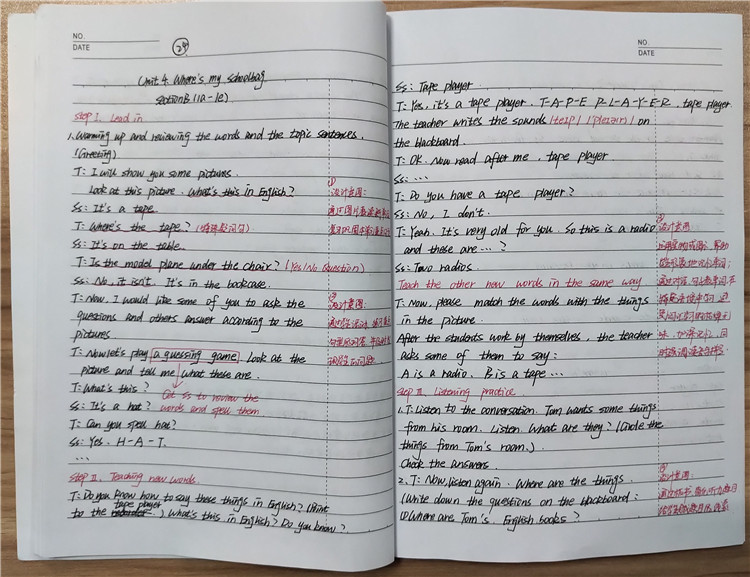 NO.
DATE
24
Unit 4 Where's my schoolbag
SectionB (1a-1e)
Step I. Lead in
1. Warming up and reviewing the words and the topic sentences
(Greeting)
T: I will show you some pictures.
Look at this picture. What's this in English?
Ss: It's a tape.
T: Where's the tape? (特殊疑问句)
Ss: It's on the table.
T: Is the model plane under the chair? (Yes/No Question)
Ss: No, it isn't. It's in the bookcase.
T: Now, I would like some of you to ask the
questions and others answer according to the
pictures
T: Now let's play a guessing game. Look at the
picture and tell me what these are.
T: What's this?
Get Ss to review the
Ss: It's a hat?
words and spell them
T: Can you spell hat?
Ss: Yes. H-A-T.
...
Step II. Teaching new words.
T: Do you know how to say these things in English? (Point
to the tape player.) What's this in English? Do you know?
①
设计意图:
②
设计意图:
NO.
DATE
Ss: Tape player.
T: Yes, it's a tape player. T-A-P-E P-L-A-Y-E-R. tape player
The teacher writes the sounds /teɪp/ /ˈpleɪə(r)/ on
the blackboard.
T: OK. Now read after me, tape player
Ss: ...
T: Do you have a tape player?
Ss: No, I don't.
T: Yeah. It's very old for you. So this is a radio
and these are ...?
Ss: Two radios.
Teach the other new words in the same way
T: Now, please match the words with the things
in the picture.
After the students work by themselves, the teacher
asks some of them to say:
A is a radio. B is a tape ...
Step III. Listening practice
1. T: Listen to the conversation. Tom wants some things
from his room. Listen. What are they? (Circle the
things from Tom's room.)
Check the answers.
2. T: Now, listen again. Where are the things.
(Write down the questions on the blackboard:
(1) Where are Tom's English books?
设计意图
设计意图: